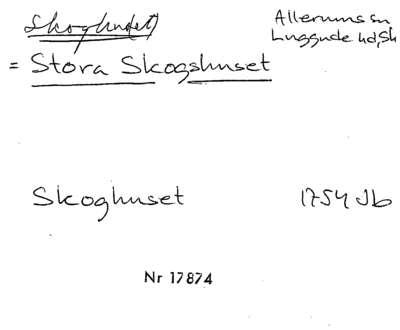 Skoghuset)
Allerums sn
Luggude hd, Sk
= Stora Skogshuset
Skoghuset 1754 Jb
Nr 17874